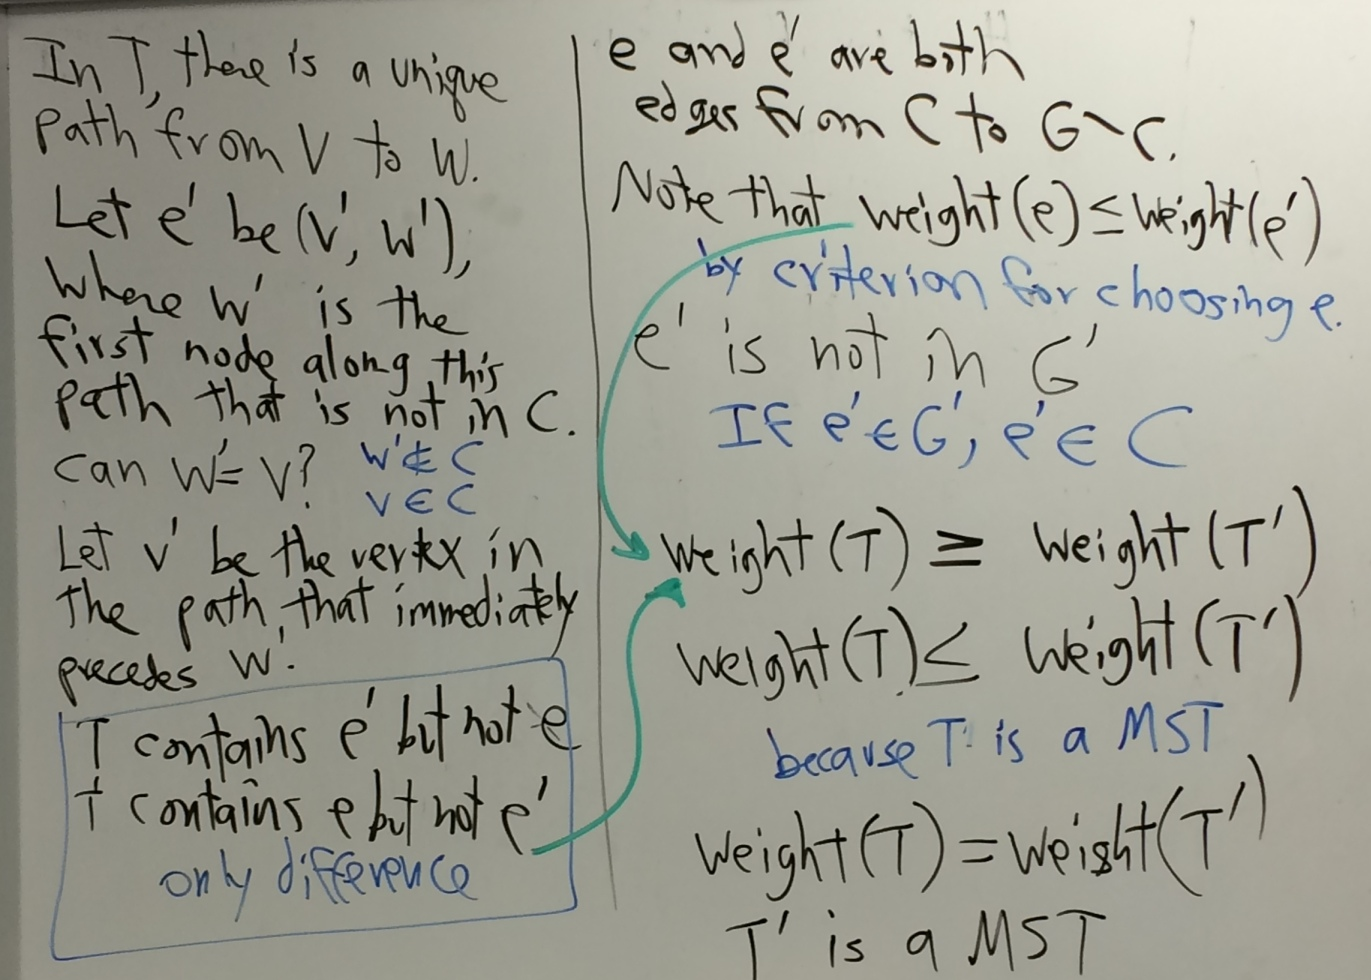 In T, there is a unique
path from V to W.
Let e' be (V', W'),
where W' is the
first node along this
path that is not in C.
Can W' = V? W' ∉ C
V ∈ C
Let V' be the vertex in
the path, that immediately
precedes W'.
T contains e' but not e
T contains e but not e'
only difference
e and e' are both
edges from C to G \ C.
Note that weight(e) ≤ weight(e')
by criterion for choosing e.
e' is not in G'
If e' ∈ G', e' ∈ C
Weight(T) ≥ Weight(T')
Weight(T) ≤ Weight(T')
because T is a MST
Weight(T) = Weight(T')
T' is a MST